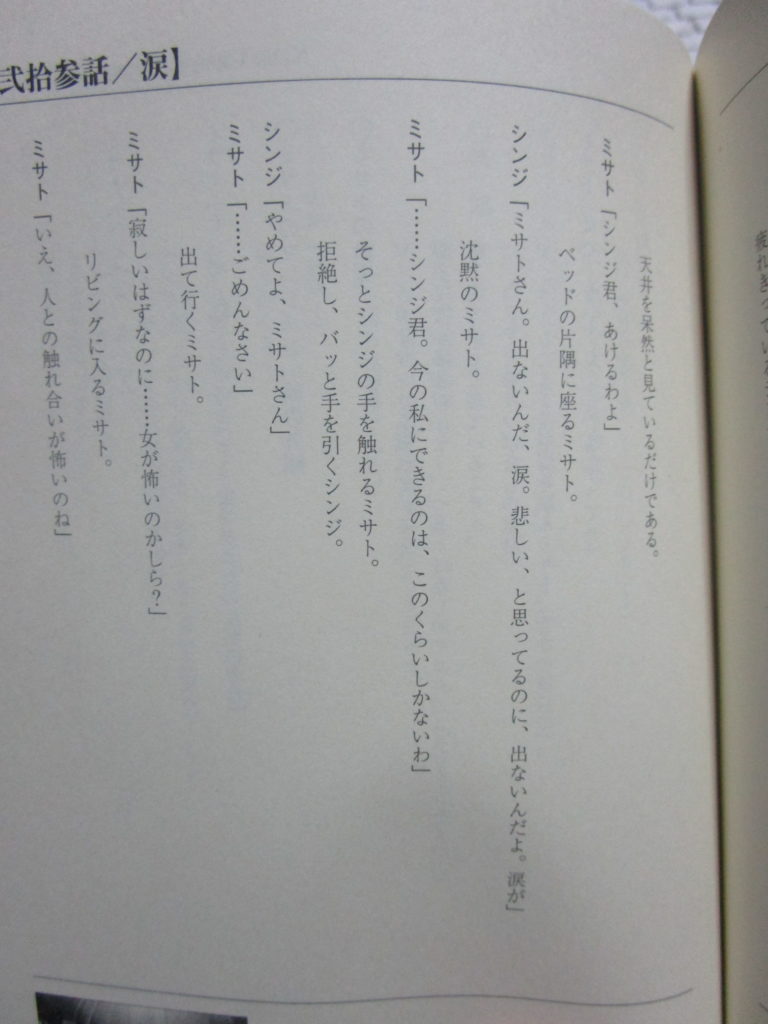 弐拾参話／涙】
天井を呆然と見ているだけである。
ミサト「シンジ君、あけるわよ」
ベッドの片隅に座るミサト。
シンジ「ミサトさん。出ないんだ、涙。悲しい、と思ってるのに、出ないんだよ。涙が」
沈黙のミサト。
ミサト「……シンジ君。今の私にできるのは、このくらいしかないわ」
そっとシンジの手を触れるミサト。
拒絶し、バッと手を引くシンジ。
シンジ「やめてよ、ミサトさん」
ミサト「……ごめんなさい」
出て行くミサト。
ミサト「寂しいはずなのに……女が怖いのかしら？」
リビングに入るミサト。
ミサト「いえ、人との触れ合いが怖いのね」